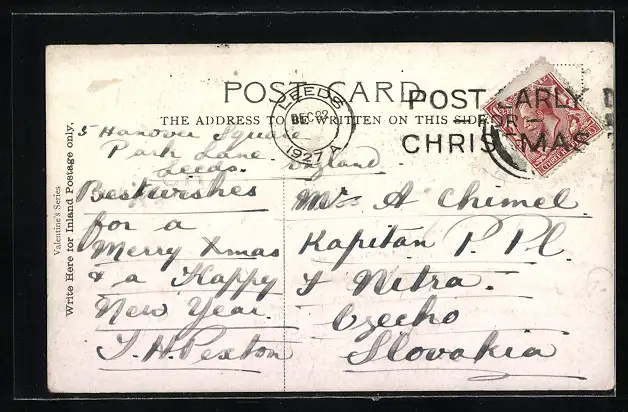 POST CARD
THE ADDRESS TO BE WRITTEN ON THIS SIDE
LEEDS
1927 A
POST EARLY
FOR
CHRISTMAS
Valentine's Series
Write Here for Inland Postage only,
5 Hanover Square
Park Lane
Leeds. England
Best wishes
for a
Merry Xmas
& a Happy
New Year.
T. H. Pexton
Mr A Chimel
Kapitan P. Pl.
Nitra.
Czecho
Slovakia